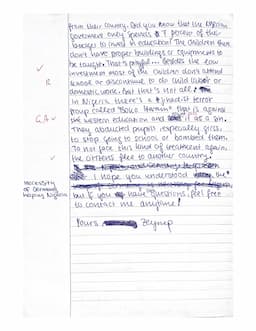 from their country. Did you know that the Nigerian
goverment only spends 7 percent of their
budget to invest in education? The children there
don't have proper buildings or equipments to
be taught. That's pityful... Besides the low
investment most of the children don't attend
school or discontinue to do child labor or
domestic work. But that's not all!
In Nigeria there's a jihadist terror
group called "Boko Haram" that is against
the western education and it as a sin.
They abducted pupils especially girls,
to stop going to school or bombard them.
To not face this kind of treatment again,
the citizens flee to another country.
I hope you understood the
but if you have questions, feel free
to contact me anytime!
Yours Zeynep
R
G, A
Necessity
of Germany
helping Nigeria